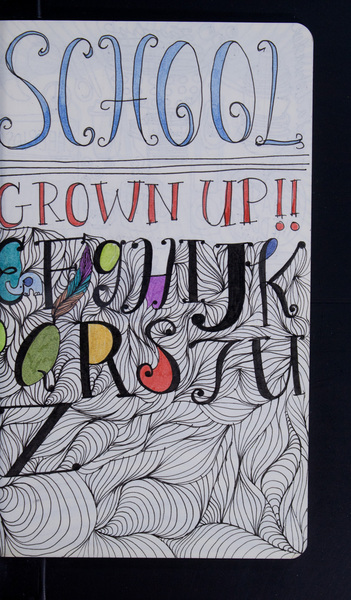 SCHOOL
GROWN UP!!
E F G H I J K
Q R S T U
Z.